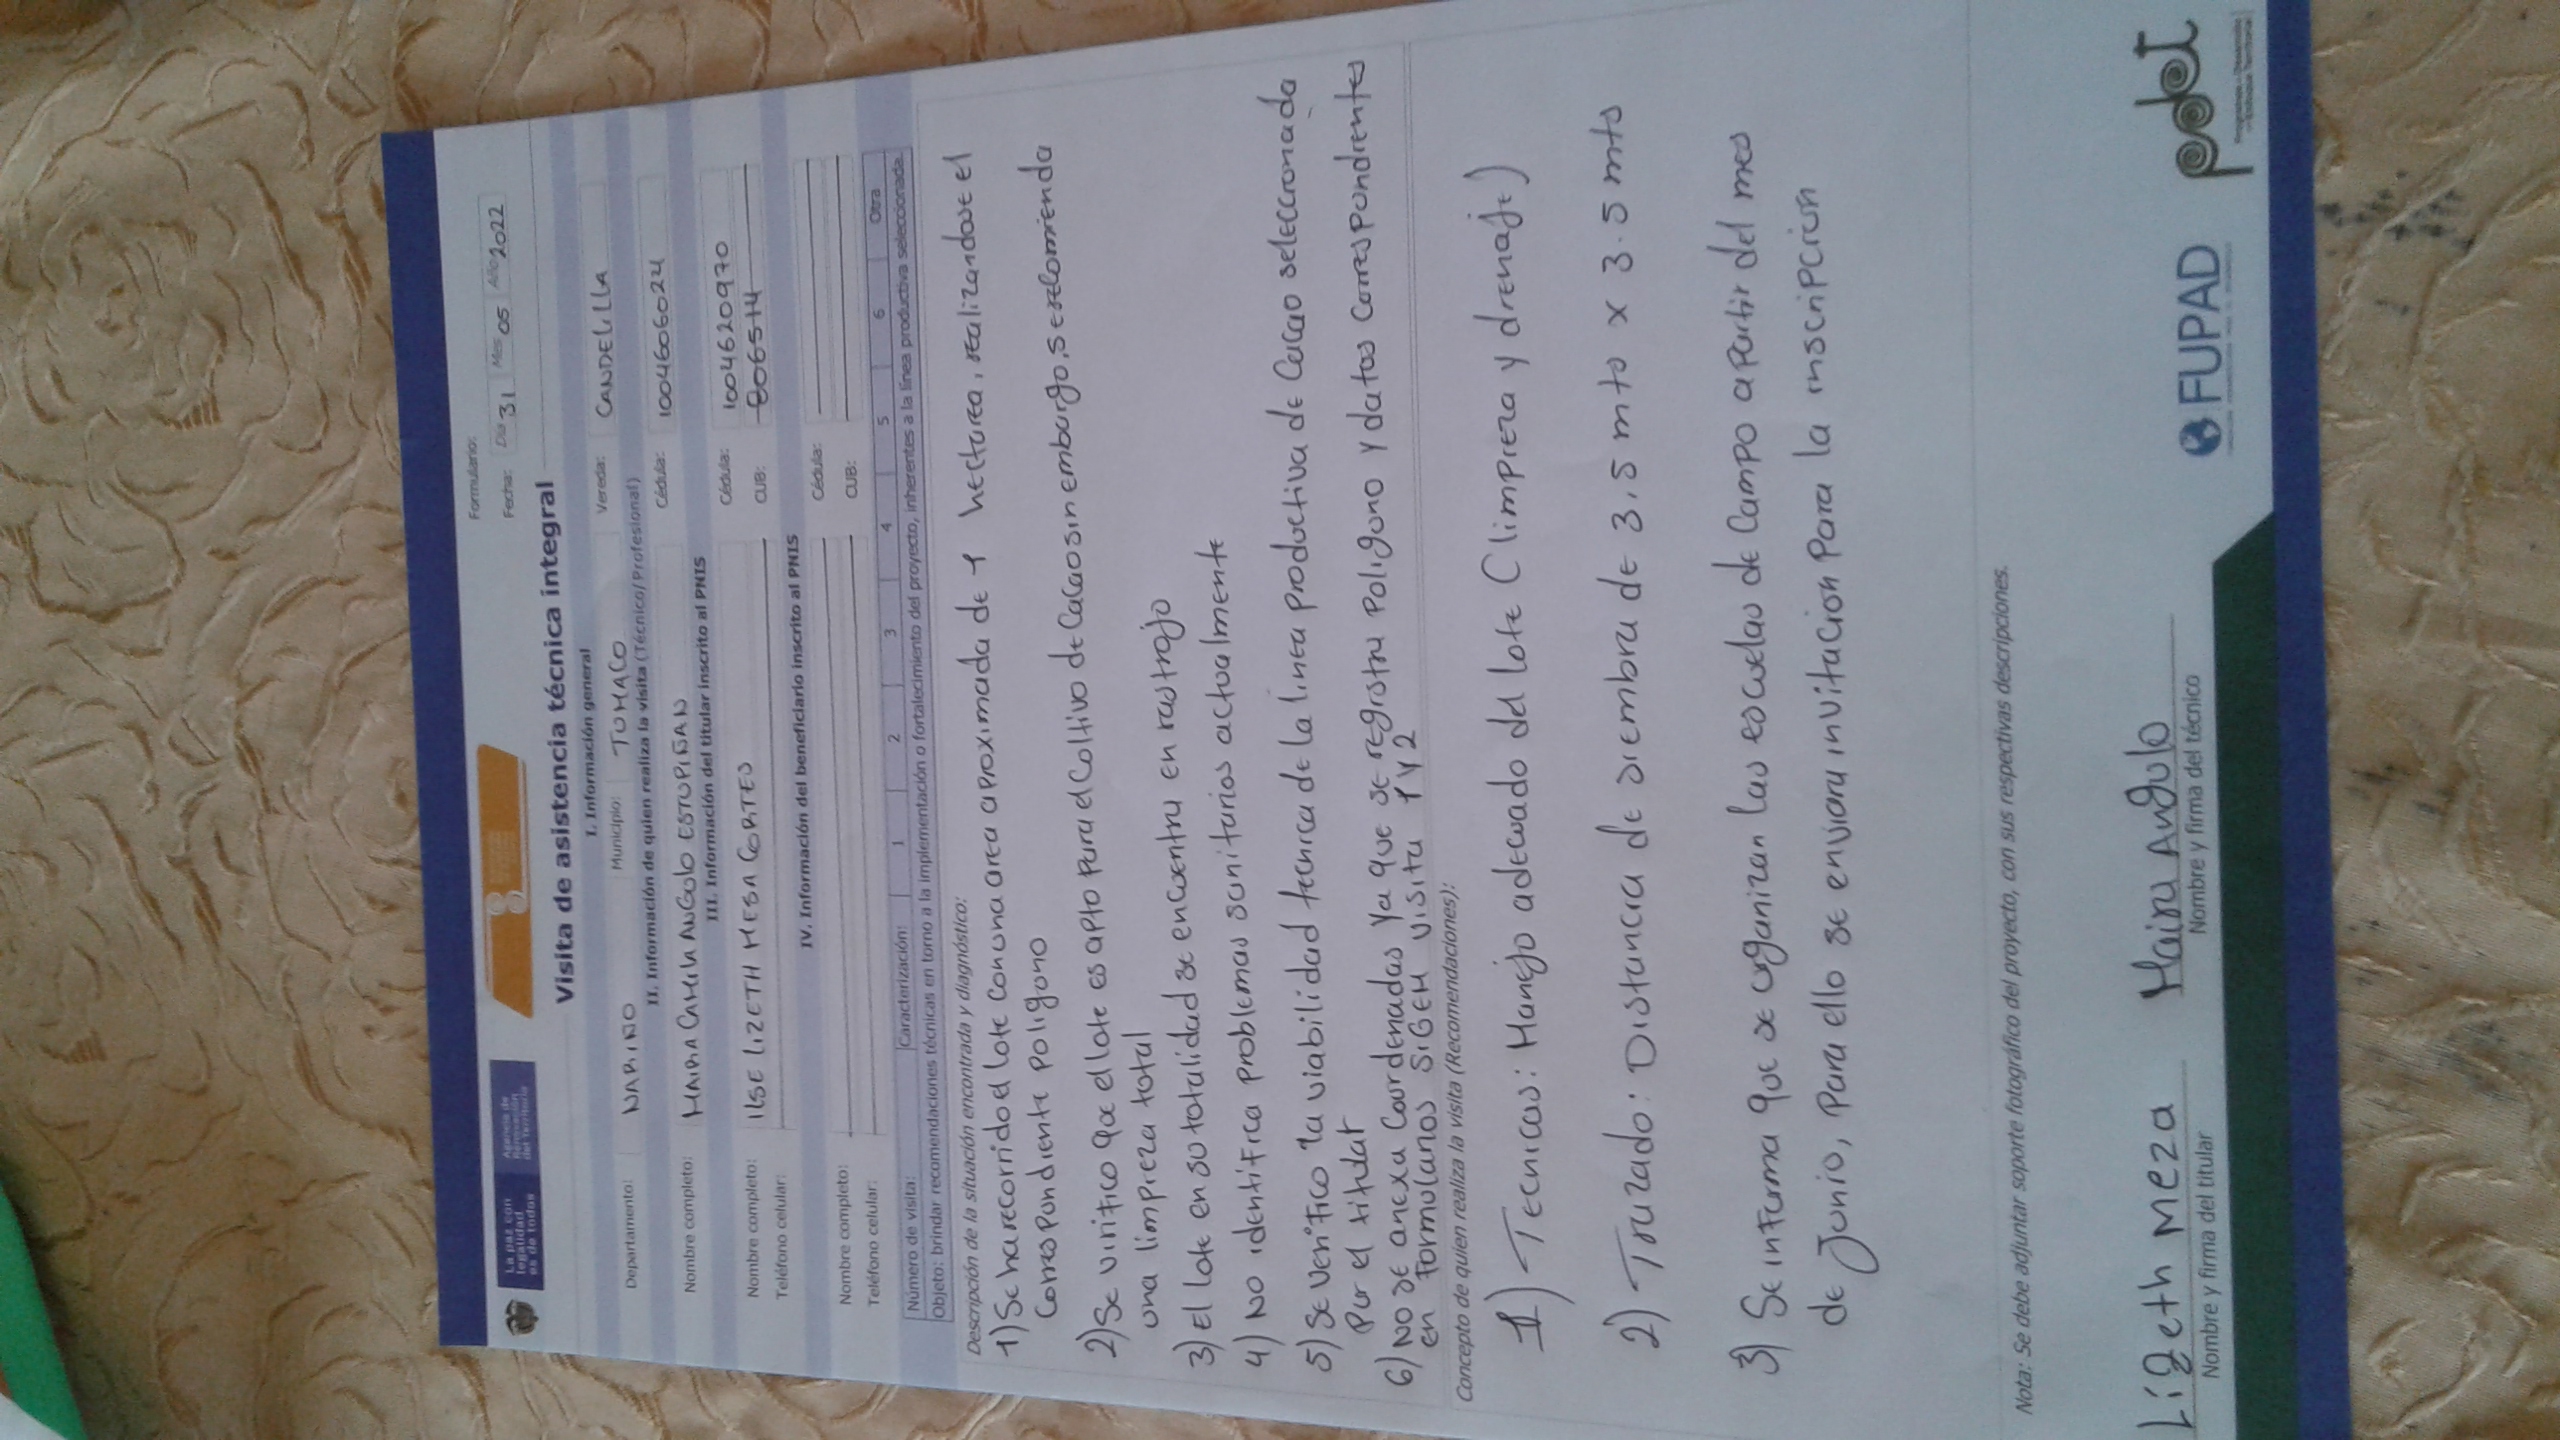 La paz con
legalidad
es de todos
Agencia de
Renovación
del Territorio
Formulario:
Fecha: Día 31 Mes 05 Año 2022
Visita de asistencia técnica integral
I. Información general
Departamento: NARIÑO Municipio: TUMACO Vereda: CANDELILLA
II. Información de quien realiza la visita (Técnico/Profesional)
Nombre completo: MAIRA CAMILA ANGULO ESTUPIÑAN Cédula: 1004606024
III. Información del titular inscrito al PNIS
Nombre completo: ILSE LIZETH MESA CORTES Cédula: 1004620970
Teléfono celular: CUB:
IV. Información del beneficiario inscrito al PNIS
Nombre completo: Cédula:
Teléfono celular: CUB:
Número de visita: Caracterización: 1 2 3 4 5 6 Otra
Objeto: brindar recomendaciones técnicas en torno a la implementación o fortalecimiento del proyecto, inherentes a la línea productiva seleccionada.
Descripción de la situación encontrada y diagnóstico:
1) Se ha recorrido el lote con una area aproximada de 1 hectarea, realizandose el
Correspondiente poligono
2) Se virifico que el lote es apto para el Coltivo de Cacao sin embargo, se rrelomienda
una limpieza total
3) El lote en su totalidad se encuentra en rastrojo
4) No identifica problemas sanitarios actualmente
5) Se Verifico la viabilidad tecnica de la linea productiva de Cacao seleccionada
Por el titular
6) No se anexa Coordenadas Ya que se registra Poligono y datos Correspondientes
en Formularios SIGEM visita 1 y 2
Concepto de quien realiza la visita (Recomendaciones):
1) Tecnicas: Manejo adecuado del lote (limpieza y drenaje)
2) Trazado: Distancia de siembra de 3,5 mts x 3.5 mts
3) Se informa que se organizan las escuelas de Campo apartir del mes
de Junio, para ello se enviara invitacion Para la inscripcion
Nota: Se debe adjuntar soporte fotográfico del proyecto, con sus respectivas descripciones.
Lizeth Meza Maira Angulo
Nombre y firma del titular Nombre y firma del técnico
FUPAD pdet